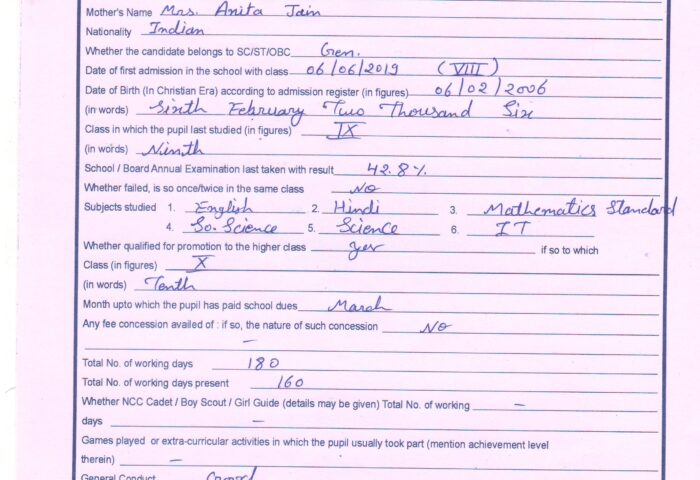 Mother's Name Mrs. Anita Jain
Nationality Indian
Whether the candidate belongs to SC/ST/OBC Gen.
Date of first admission in the school with class 06/06/2019 (VIII)
Date of Birth (In Christian Era) according to admission register (in figures) 06/02/2006
(in words) Sixth February Two Thousand Six
Class in which the pupil last studied (in figures) IX
(in words) Ninth
School / Board Annual Examination last taken with result 42.8%
Whether failed, is so once/twice in the same class NO
Subjects studied 1. English 2. Hindi 3. Mathematics Standard
4. So. Science 5. Science 6. IT
Whether qualified for promotion to the higher class yes if so to which
Class (in figures) X
(in words) Tenth
Month upto which the pupil has paid school dues March
Any fee concession availed of : if so, the nature of such concession NO
–
Total No. of working days 180
Total No. of working days present 160
Whether NCC Cadet / Boy Scout / Girl Guide (details may be given) Total No. of working –
days –
Games played or extra-curricular activities in which the pupil usually took part (mention achievement level
therein) –
General Conduct Good